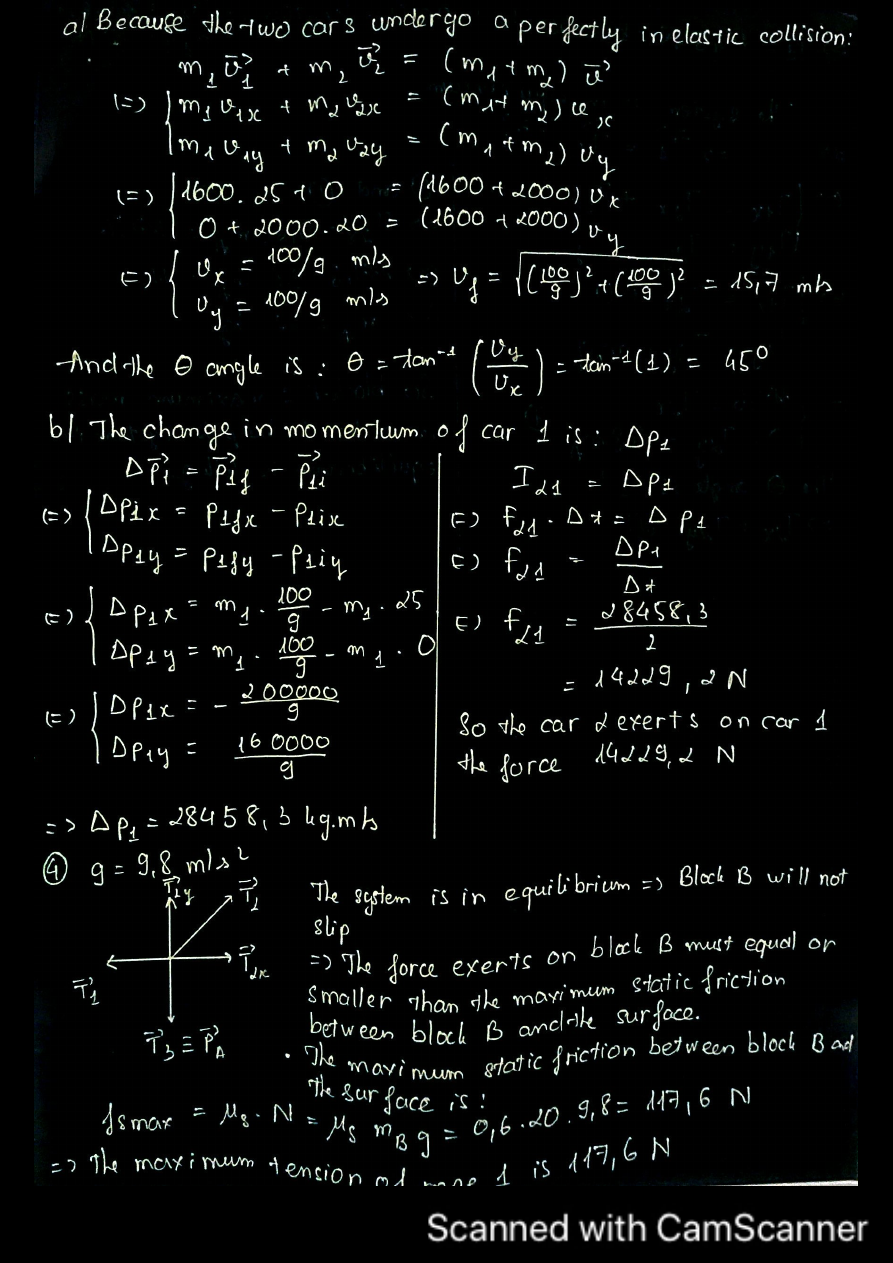 a/ Because the two cars undergo a perfectly inelastic collision:
m₁v⃗₁ + m₂v⃗₂ = (m₁ + m₂) v⃗
(=) { m₁v₁ₓ + m₂v₂ₓ = (m₁ + m₂) vₓ
m₁v₁y + m₂v₂y = (m₁ + m₂) vy
(=) { 1600. 25 + 0 = (1600 + 2000) vₓ
0 + 2000. 20 = (1600 + 2000) vy
(=) { vₓ = 100/9 m/s
vy = 100/9 m/s => vf = √((100/9)² + (100/9)²) = 15,7 m/s
And the θ angle is : θ = tan⁻¹ (vy/vx) = tan⁻¹(1) = 45°
b/ The change in momentum of car 1 is : Δp₁
Δp⃗₁ = p⃗₁f - p⃗₁i
(=) { Δp₁x = p₁fx - p₁ix
Δp₁y = p₁fy - p₁iy
(=) { Δp₁x = m₁ . 100/9 - m₁ . 25
Δp₁y = m₁ . 100/9 - m₁ . 0
(=) { Δp₁x = - 200000/9
Δp₁y = 160000/9
=> Δp₁ = 28458,3 kg.m/s
I₂₁ = Δp₁
(=) f₂₁ . Δt = Δp₁
(=) f₂₁ = Δp₁/Δt
(=) f₂₁ = 28458,3/2
= 14229,2 N
So the car 2 exerts on car 1
the force 14229,2 N
④ g = 9,8 m/s²
T⃗₂y
T⃗₂
T⃗₂x
T⃗₁
T⃗₃ ≡ P⃗A
The system is in equilibrium => Block B will not
slip
=> The force exerts on block B must equal or
smaller than the maximum static friction
between block B and the surface.
. The maximum static friction between block B and
the surface is :
fsmax = μs . N = μs mB g = 0,6 . 20 . 9,8 = 117,6 N
=> The maximum tension of rope 1 is 117,6 N
Scanned with CamScanner